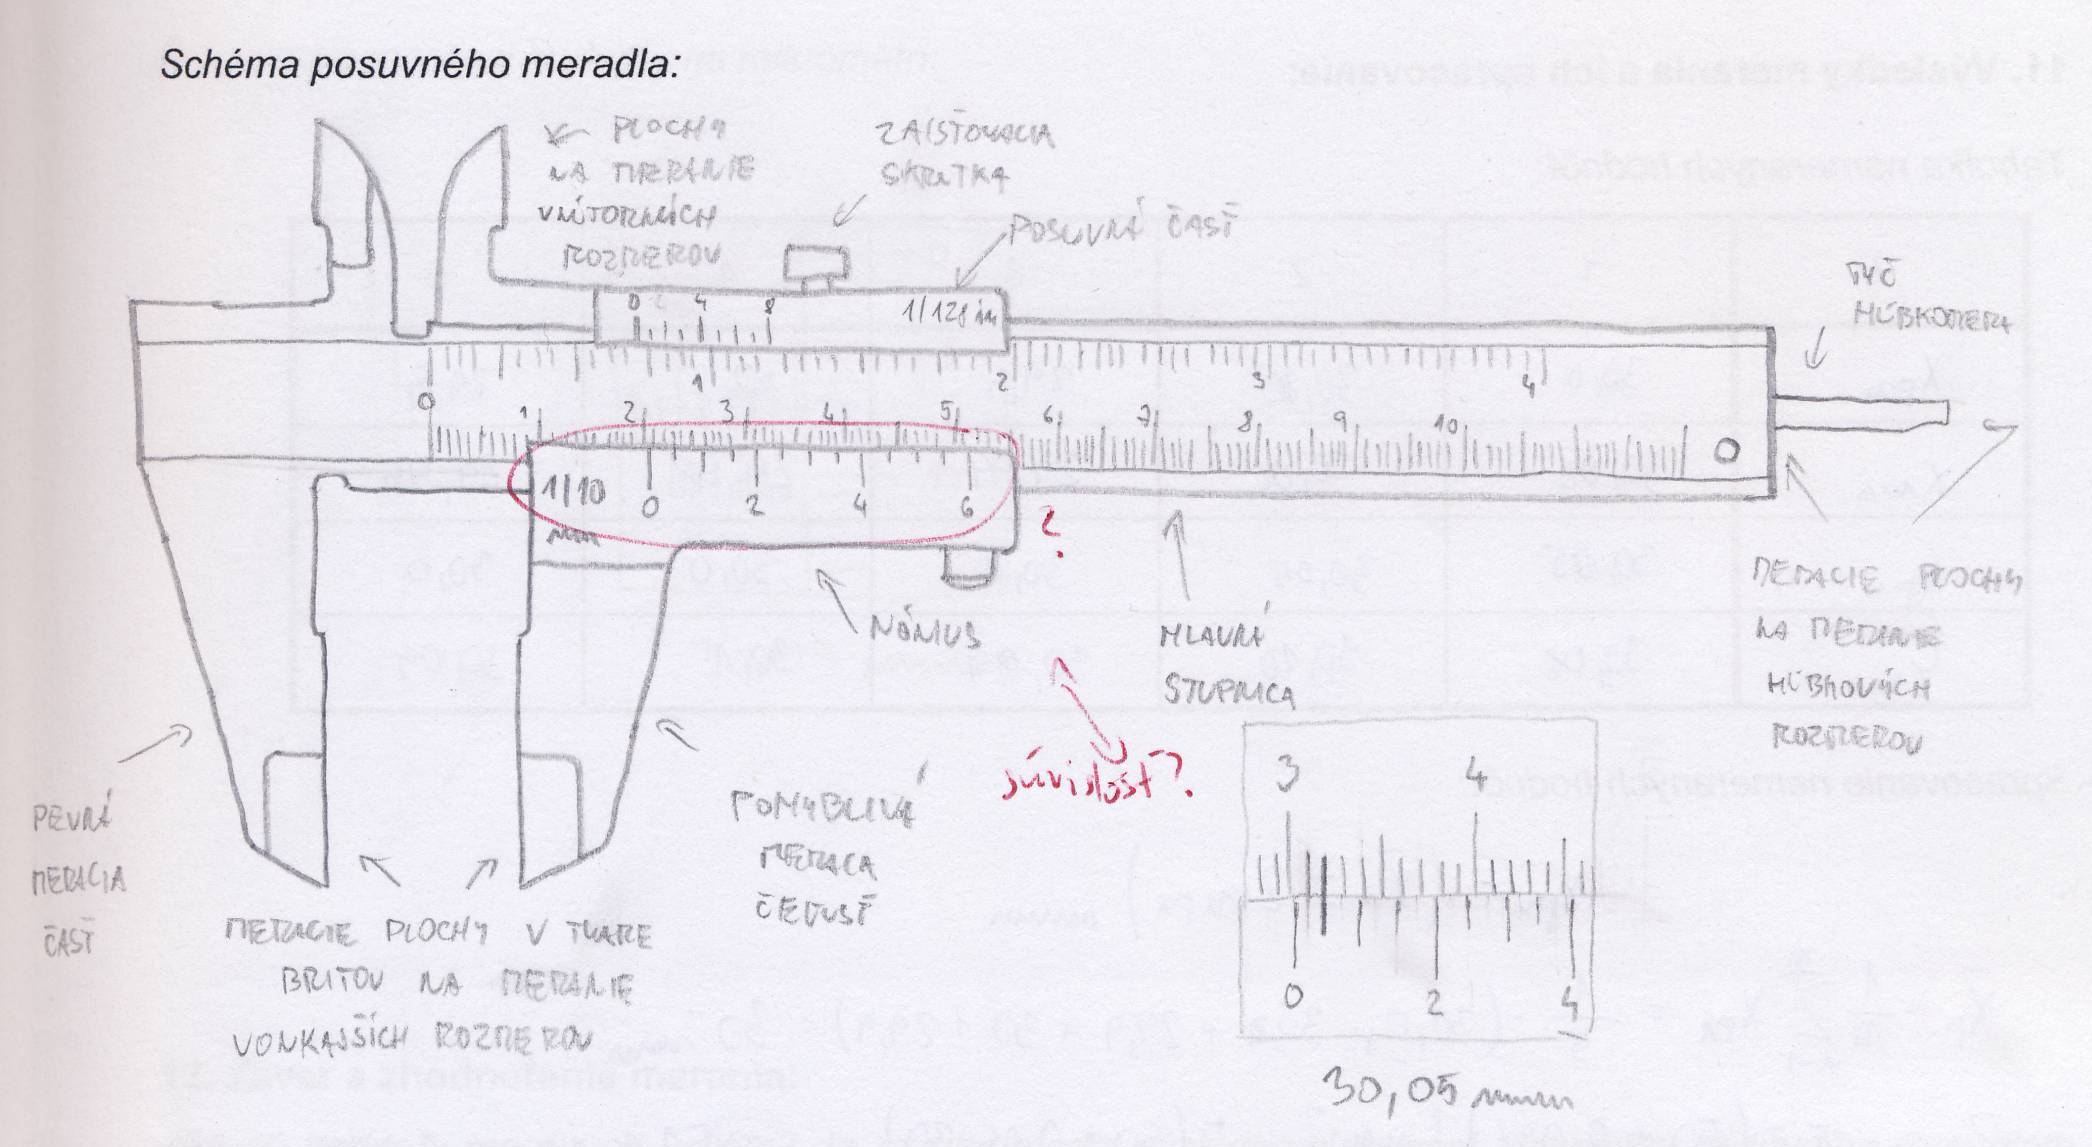 Schéma posuvného meradla:
PLOCHY
NA MERANIE
VNÚTORNÝCH
ROZMEROV
ZAISŤOVACIA
SKRUTKA
POSUVNÁ ČASŤ
TYČ
HĹBKOMERA
0 4 8
1/128 in
1 2 3 4
0 1 2 3 4 5 6 7 8 9 10
1/10
mm
0 2 4 6
?
NÓNIUS
HLAVNÁ
STUPNICA
MERACIE PLOCHY
NA MERANIE
HĹBKOVÝCH
ROZMEROV
súvislosť?
PEVNÁ
MERACIA
ČASŤ
MERACIE PLOCHY V TVARE
BRITOV NA MERANIE
VONKAJŠÍCH ROZMEROV
POHYBLIVÁ
MERACA
ČEĽUSŤ
3 4
0 2 4
30,05 mm